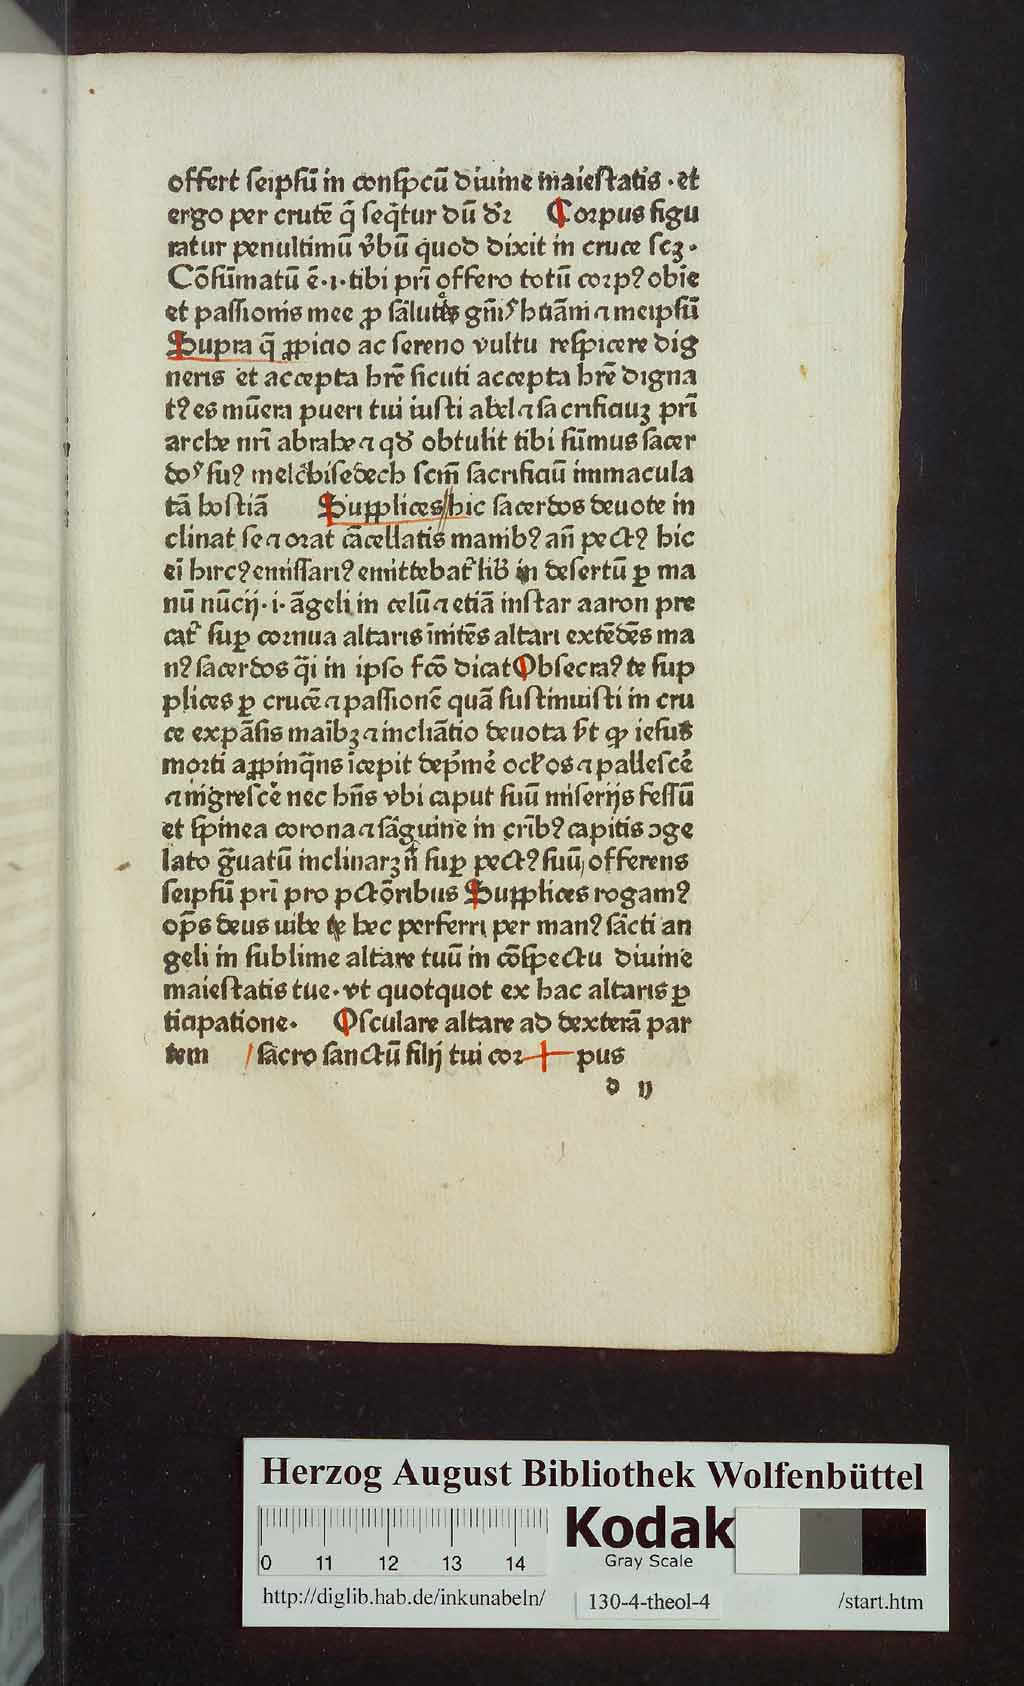 offert seipsū in conspcū diuine maiestatis · et
ergo per crutē q̄ seq̄tur dū dr̄ Corpus figu
ratur penultimū v̄bū quod dixit in cruce scꝫ ·
Cōsūmatū ē · i · tibi pri̅ offero totū corpꝰ obie
et passionis mee ꝓ sālute
Supra q̄ ꝓpicio ac sereno vultu respicere dig
neris et accepta hr̄e sicuti accepta hr̄e digna
tꝰ es mūera pueri tui iusti abel ⁊ sacrificiuꝫ pri̅
arche nri̅ abrahe ⁊ qd̛ obtulit tibi sūmus sacer
do᷒ suꝰ melchisedech scm̄ sacrificiū immacula
tā hostiā Supplices hic sacerdos deuote in
clinat se ⁊ orat cācellatis manibꝰ an̄ pectꝰ hic
ei̅ hircꝰ emissariꝰ emittebat᷑ lib̛ in desertū ꝑ ma
nū nūcij · i · āgeli in celū ⁊ etiā instar aaron pre
cat᷑ suꝑ cornua altaris īnitēs altari extēdēs ma
nꝰ sacerdos q̄i in ipso fcō dicat Obsecraꝰ te sup
plices ꝑ crucē ⁊ passionē quā sustinuisti in cru
ce expāsis maībꝫ ⁊ incliātio deuota s̛t ꝙ iesus
morti aꝓpinq̄ns īcepit dep̄mē ocl̛os ⁊ pallescē
⁊ nigrescē nec hn̄s vbi caput suū miserijs fessū
et spinea corona ⁊ sāguine in cri̅bꝰ capitis ɔge
lato gͣuatū inclinarꝫ n̄ suꝑ pectꝰ suū offerens
seipsū pri̅ pro pctōribus Supplices rogamꝰ
op̄s deus iube te hec perferri per manꝰ sācti an
geli in sublime altare tuū in cōspectu diuine
maiestatis tue · vt quotquot ex hac altaris ꝑ
ticipatione · Osculare altare ad dexterā par
tem sacro sanctū filij tui cor + pus
d ij
Herzog August Bibliothek Wolfenbüttel
Kodak
Gray Scale
0 11 12 13 14
http://diglib.hab.de/inkunabeln/ 130-4-theol-4 /start.htm